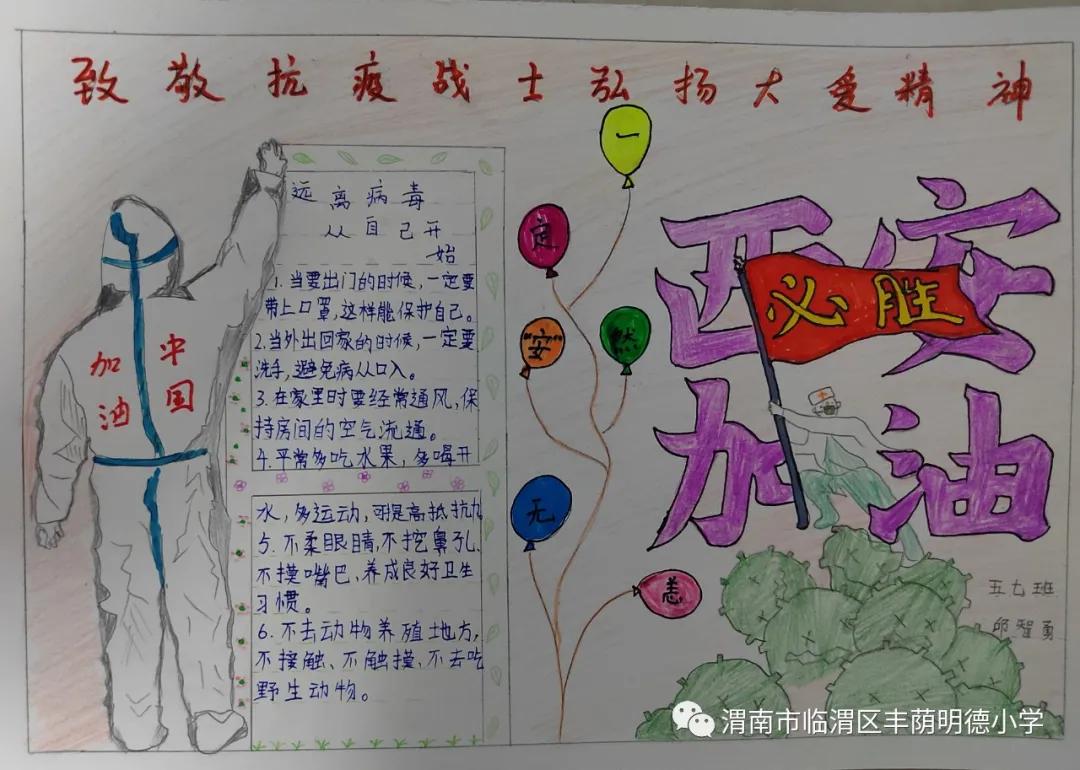 致敬抗疫战士弘扬大爱精神
远离病毒
从自己开
始
1.当要出门的时候，一定要
带上口罩，这样能保护自己。
2.当外出回家的时候，一定要
洗手，避免病从口入。
3.在家里时要经常通风，保
持房间的空气流通。
4.平常多吃水果，多喝开
水，多运动，可是高抵抗力
5.不柔眼睛，不挖鼻孔、
不摸嘴巴，养成良好卫生
习惯。
6.不去动物养殖地方，
不接触、不触摸、不去吃
野生动物。
中国
加油
一
定
"安"
然
无
恙
西安
加油
必胜
五七班
邱智勇
渭南市临渭区丰荫明德小学